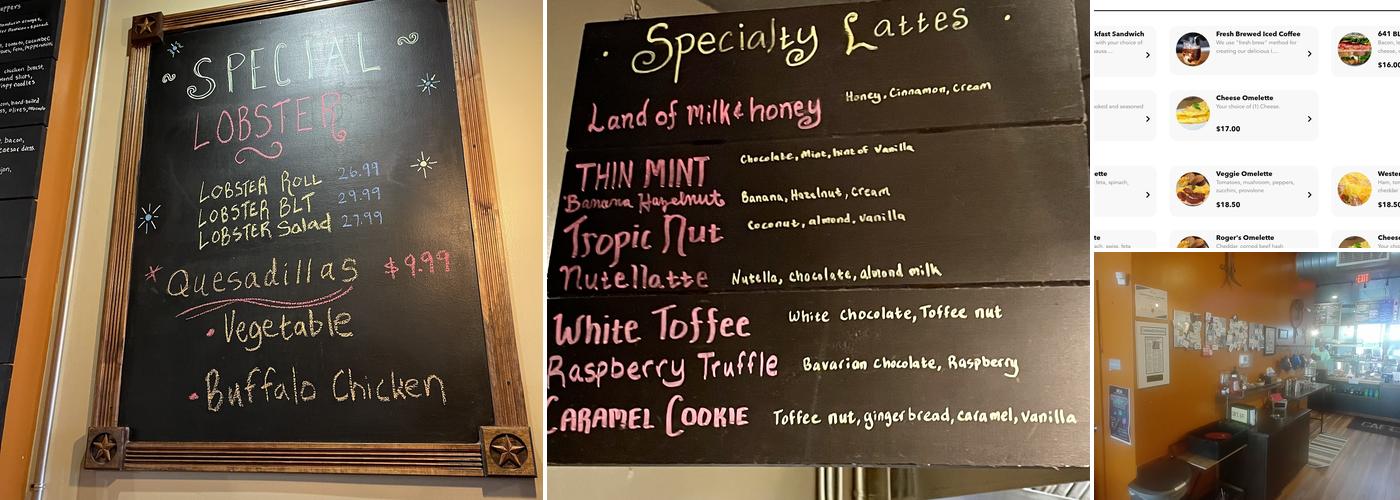 SPECIAL
LOBSTER
LOBSTER ROLL 26.99
LOBSTER BLT 29.99
LOBSTER Salad 27.99
Quesadillas $9.99
Vegetable
Buffalo Chicken
Specialty Lattes
Land of milk & honey Honey, Cinnamon, Cream
THIN MINT Chocolate, Mint, hint of Vanilla
Banana Hazelnut Banana, Hazelnut, Cream
Tropic Nut Coconut, almond, vanilla
Nutellatte Nutella, chocolate, almond milk
White Toffee White Chocolate, Toffee nut
Raspberry Truffle Bavarian chocolate, Raspberry
CARAMEL COOKIE Toffee nut, gingerbread, caramel, vanilla
kfast Sandwich
with your choice of
Fresh Brewed Iced Coffee
We use "fresh brew" method for
creating our delicious i...
641 BL
Bacon,
cheese,
$16.00
oked and seasoned
Cheese Omelette
Your choice of (1) Cheese.
$17.00
ette
feta, spinach,
Veggie Omelette
Tomatoes, mushroom, peppers,
zucchini, provolone
$18.50
Wester
Ham, ton
cheddar
$18.50
te
ach, swiss, feta
Roger's Omelette
Cheddar, corned beef hash
Chees
EXIT